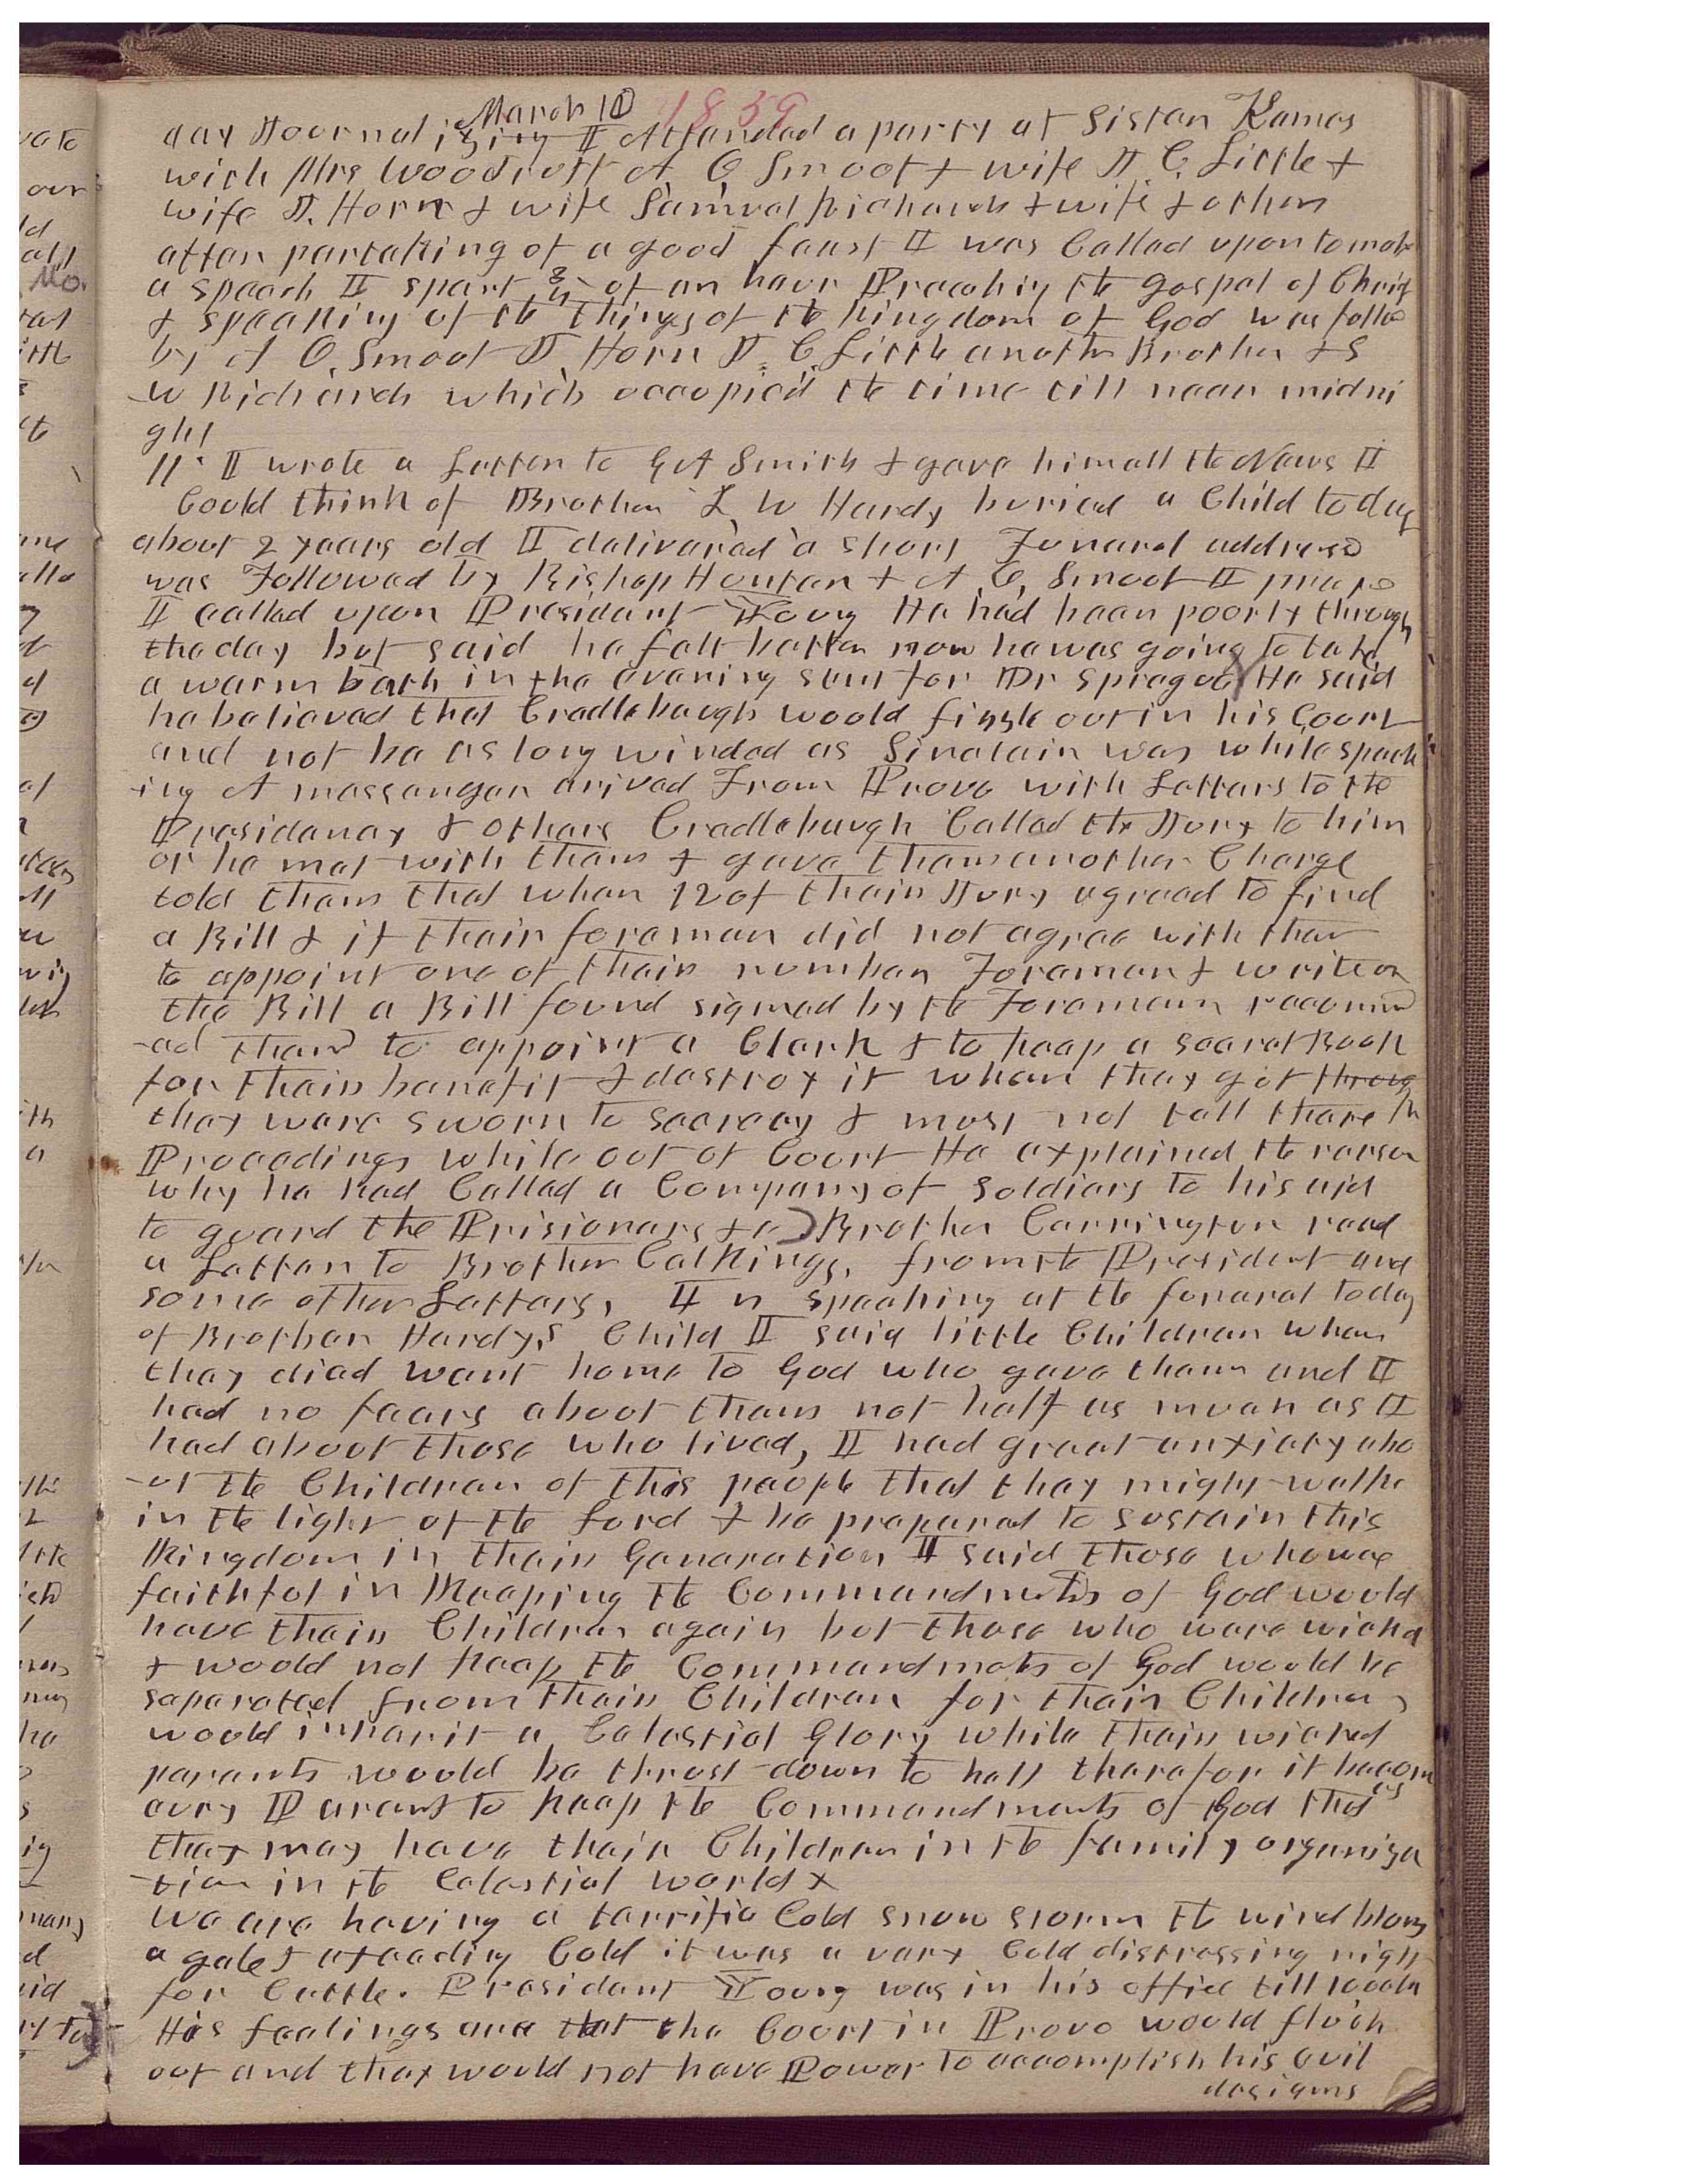 March 10 1859
day Journalizing I Attended a party at Sister Kames
with Mrs Woodruff A O Smoot & wife J. C. Little &
wife J. Horn & wife Samuel Richards & wife & others
after partaking of a good feast I was Called upon to make
a speech I spent 3/4 of an hour Preaching the gospel of Christ
& speaking of the things of the kingdom of God was follo
by A O. Smoot J. Horn J. C. Little another Brother & S
-W Richards which occupied the time till near midni
ght
11th I wrote a Letter to G A Smith & gave him all the News I
Could think of Brother L W Hardy buried a Child to day
about 2 years old I delivered a short Funeral address
was Followed by Bishop Hunter & A. O, Smoot I
I called upon President Young He had been poorly through
the day but said he felt better now he was going to take
a warm bath in the evening sent for Dr Sprague He said
he believed that Cradlebaugh would fizzle out in his Court
and not be as long winded as Sinclair was while speak
ing A messenger arived From Provo with Letters to the
Presidency & others Cradlebaugh Called the Jury to him
or he met with them & gave them another Charge
told them that when 12 of their Jury agreed to find
a Bill & if their foreman did not agree with them
to appoint one of their number Foreman & write on
the Bill a Bill found signed by the Foreman recommd
-ed them to appoint a Clerk & to keep a secret Book
for their benefit & destroy it when they got through
they were sworn to secrecy & must not tell there
Proceedings while out of Court He explained the reason
why he had Called a Company of Soldiers to his aid
to guard the Prisioners &c Brother Carrington read
a Letter to Brother Calkings, from the President and
some other Letters, In speaking at the funeral today
of Brother Hardy,s Child I said little Children when
they died went home to God who gave them and I
had no fears about them not half as much as I
had about those who lived, I had great anxiety abo
-ut the Children of this people that they might walke
in the light of the Lord & be prepared to sustain this
Kingdom in their Generation I said those who was
faithful in Keeping the Commandmets of God would
have their Children again but those who were wicked
& would not keep the Commandmets of God would be
separated from their Children for their Children
would inherit a Celestial Glory while their wicked
parents would be thrust down to hell therefor it becom
es
evry Parent to keep the Commandments of God that
they may have their Children in the family organiza
-tion in the Celestial world &
We are having a terrific Cold snow storm the wind blows
a gale & exceeding Cold it was a very Cold distressing night
for Cattle. President Young was in his office till 10 oclk
His feelings are that the Court in Provo would flush
out and they would not have Power to accomplish his evil
designs